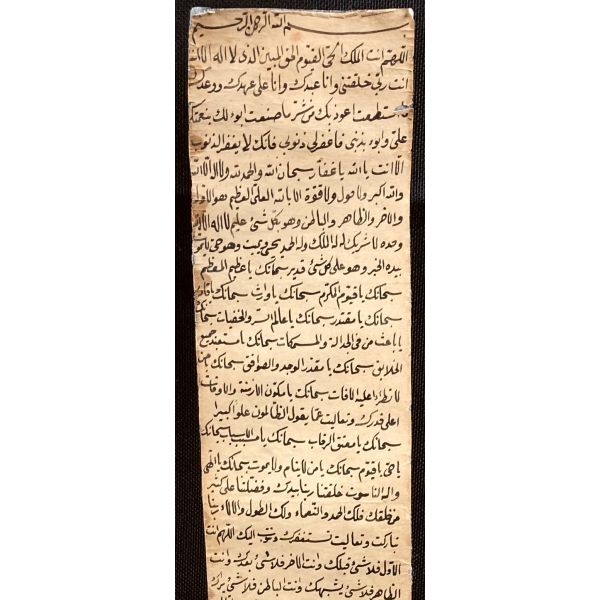 بسم الله الرحمن الرحيم
اللهم انت الملك الحي القيوم الحق المبين الذي لا اله الا انت
انت ربي خلقتني وانا عبدك وانا على عهدك ووعدك
ما استطعت اعوذ بك من شر ما صنعت ابوء لك بنعمتك
علي وابوء بذنبي فاغفر لي ذنوبي فانك لا يغفر الذنوب
الا انت يا الله يا غفار سبحان الله والحمد لله ولا اله الا الله
والله اكبر ولا حول ولا قوة الا بالله العلي العظيم هو الاول
والاخر والظاهر والباطن وهو بكل شئ عليم لا اله الا الله
وحده لا شريك له له الملك وله الحمد يحيي ويميت وهو حي لا يموت
بيده الخير وهو على كل شئ قدير سبحانك يا عظيم المعظم
سبحانك يا قيوم المكرم سبحانك يا وارث سبحانك يا قادر
سبحانك يا مقتدر سبحانك يا عالم السر والخفيات سبحانك
يا باعث من في سبحانك جميع
الخلايق سبحانك يا مقدر الوجد والصوافق سبحانك
لا تطرا عليه الافات سبحانك يا مكون الازمنة والاوقات
اعلى قدرك وتعاليت عما يقول الظالمون علوا كبيرا
سبحانك يا معتق الرقاب سبحانك يا مسبب الاسباب سبحانك
يا حي يا قيوم سبحانك يا من لا ينام ولا يموت سبحانك يا الهي
واله الناسوت خلقتنا ربنا بيدك وفضلتنا على كثير
من خلقك فلك الحمد والنعماء ولك الطول والالاء ربنا
تباركت وتعاليت نستغفرك ونتوب اليك اللهم انت
الاول فلا شئ قبلك وانت الاخر فلا شئ بعدك وانت
الظاهر فلا شئ يشبهك وانت الباطن فلا شئ يراك